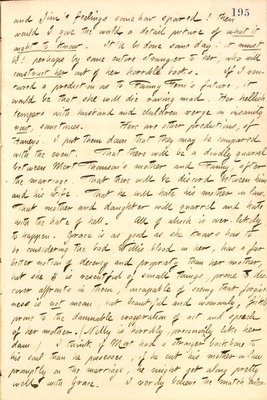 195
and Jim's feelings somehow spared! then
would I give the world a detail picture of what it
ought to know. It'll be done some day: it must
be: perhaps by some entire stranger to her, who will
construct her out of her horrible books. If I ven-
tured a prediction as to Fanny Fern's future, it
would be that she will die raving mad. Her hellish
tempers with husband and children verge on insanity
now, sometimes. Here are other predictions, of
things. I put them down that they may be compared
with the event. That there will be a deadly quarrel
between Mort Thomson's mother and Fanny after
the marriage. That there will be discord between him
and his wife. That he will hate his mother in law.
That mother and daughter will quarrel and hate
with the hate of hell. All of which is over-likely
to happen. Grace is as good as she knows how to
be considering the bad Willis blood in her, has a far
better notion of decency and propriety than her mother,
but she is resentful of small things, prone to dis-
cover affronts in them, incapable of seeing that forgive-
ness is not mean, but beautiful and womanly, &
prone to the damnable exaggeration of act and speech
of her mother. (Nelly is horribly precociously like her
dam!) I think if Mort had a stronger backbone to
his soul than he possesses, if he cut his mother-in-law
promptly on the marriage, he might get along pretty
well with Grace. I verily believe the match